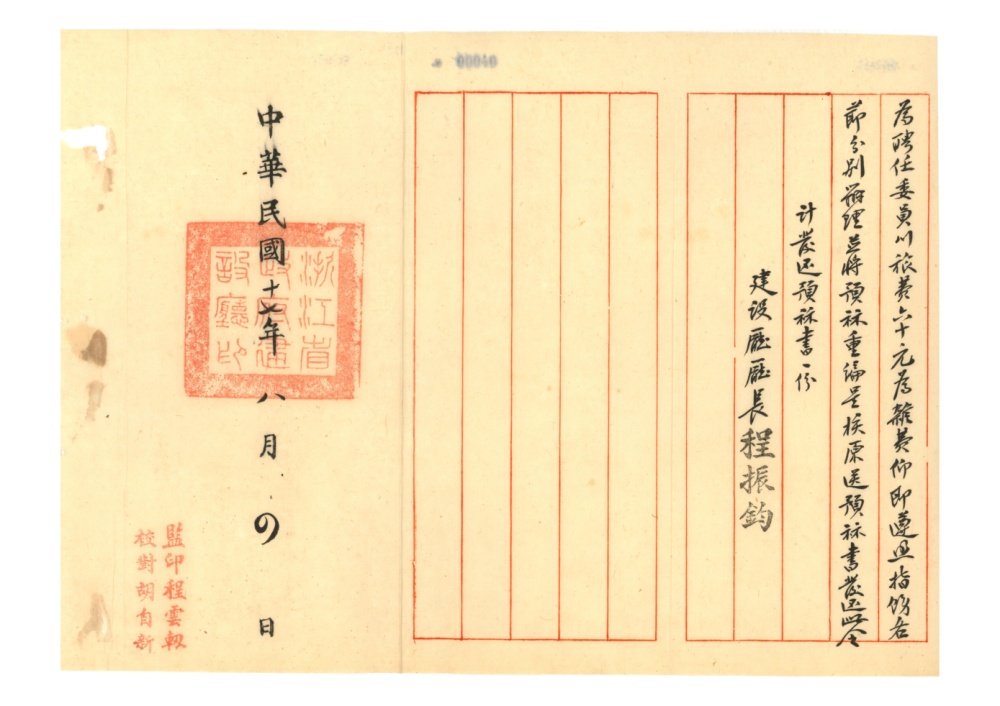 00040
為聘任委員川旅費六十元為雜費仰即遵照指飭各
節分別辦理並將預祘重編呈核原送預祘書發还此令
计發还預祘書一份
建设廳廳長程振鈞
中華民國十七年八月 日
浙江省
政府建
設廳印
監印程雲
校對胡自新